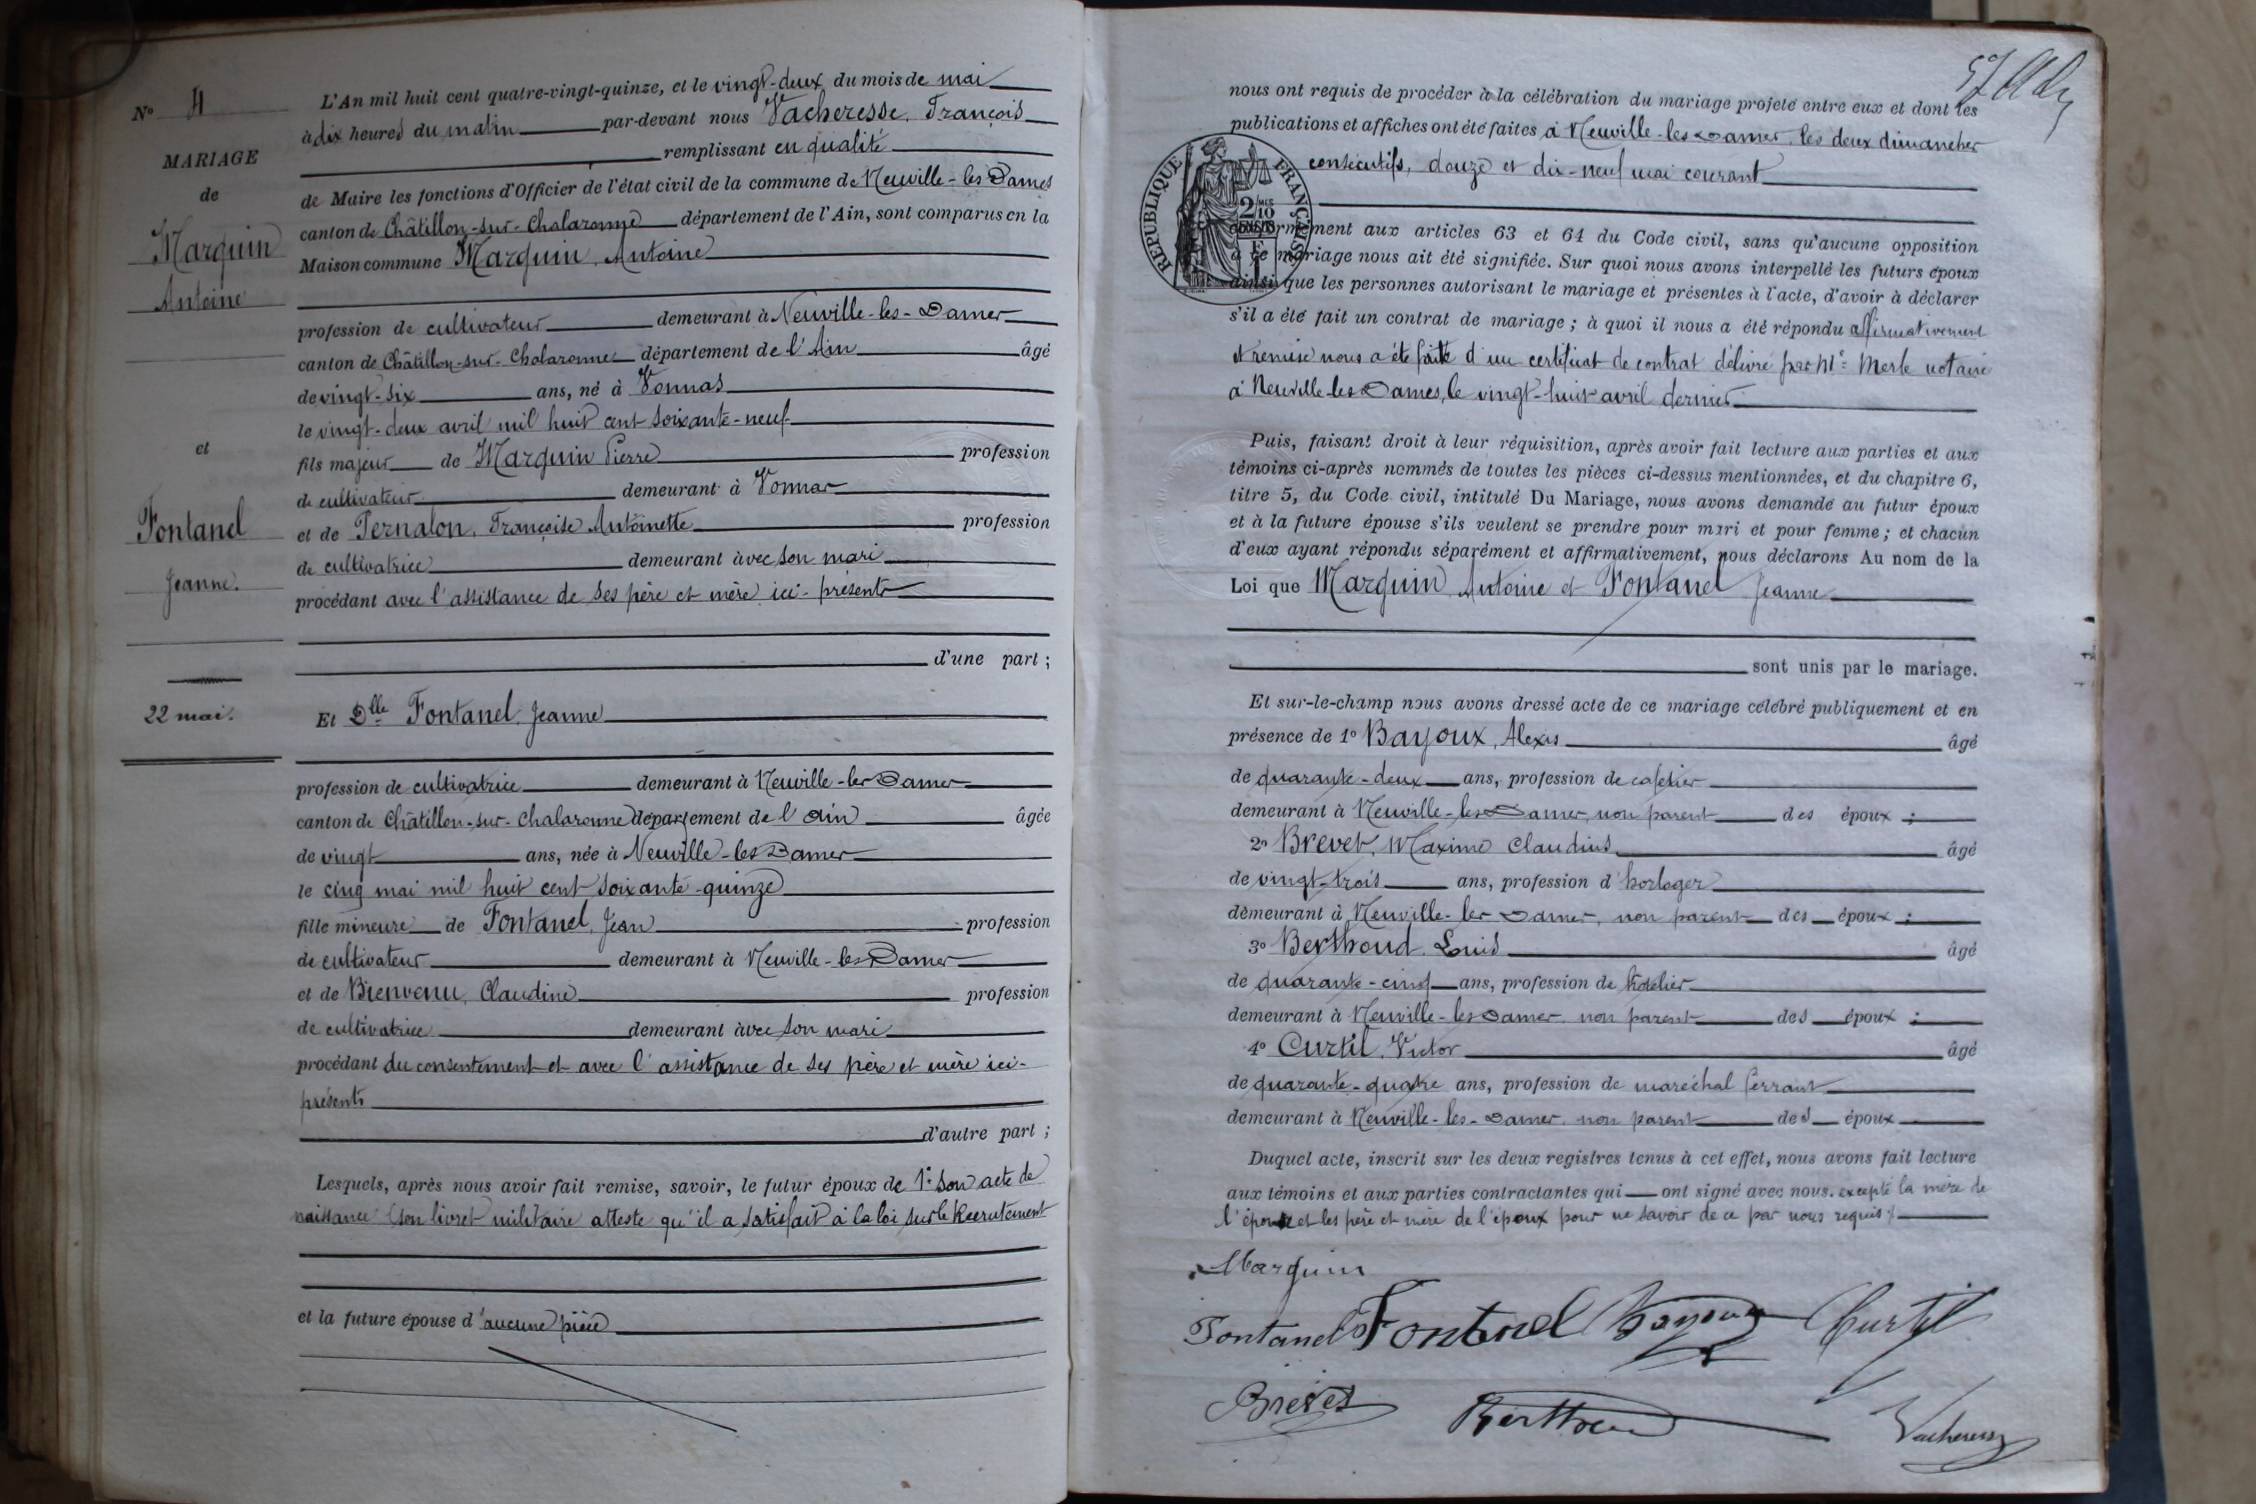 Nº 4
MARIAGE
de
Marquin
Antoine
et
Fontanel
Jeanne.
22 mai.
L'An mil huit cent quatre-vingt-quinze, et le vingt-deux du mois de mai
à dix heures du matin par-devant nous Vacheresse, François
remplissant en qualité
de Maire les fonctions d'Officier de l'état civil de la commune de Neuville-les-Dames
canton de Châtillon-sur-Chalaronne département de l'Ain, sont comparus en la
Maison commune Marquin, Antoine
profession de cultivateur demeurant à Neuville-les-Dames
canton de Châtillon-sur-Chalaronne département de l'Ain âgé
de vingt-six ans, né à Vonnas
le vingt-deux avril mil huit cent soixante-neuf
fils majeur de Marquin Pierre profession
de cultivateur demeurant à Vonnas
et de Pernalon, Françoise Antoinette profession
de cultivatrice demeurant avec son mari
procédant avec l'assistance de ses père et mère ici-présents
d'une part ;
Et Dlle Fontanel, Jeanne
profession de cultivatrice demeurant à Neuville-les-Dames
canton de Châtillon-sur-Chalaronne département de l'Ain âgée
de vingt ans, née à Neuville-les-Dames
le cinq mai mil huit cent soixante-quinze
fille mineure de Fontanel, Jean profession
de cultivateur demeurant à Neuville-les-Dames
et de Bienvenu, Claudine profession
de cultivatrice demeurant avec son mari
procédant du consentement et avec l'assistance de ses père et mère ici-
présents
d'autre part ;
Lesquels, après nous avoir fait remise, savoir, le futur époux de 1º son acte de
naissance (son livret militaire atteste qu'il a satisfait à la loi sur le Recrutement
et la future épouse d'aucune pièce
nous ont requis de procéder à la célébration du mariage projeté entre eux et dont les
publications et affiches ont été faites à Neuville-les-Dames, les deux dimanches
consécutifs, douze et dix-neuf mai courant
RÉPUBLIQUE FRANÇAISE
2/10
conformément aux articles 63 et 64 du Code civil, sans qu'aucune opposition
à ce mariage nous ait été signifiée. Sur quoi nous avons interpellé les futurs époux
ainsi que les personnes autorisant le mariage et présentes à l'acte, d'avoir à déclarer
s'il a été fait un contrat de mariage ; à quoi il nous a été répondu affirmativement
et remise nous a été faite d'un certificat de contrat délivré par Me Merle notaire
à Neuville-les-Dames, le vingt-huit avril dernier
Puis, faisant droit à leur réquisition, après avoir fait lecture aux parties et aux
témoins ci-après nommés de toutes les pièces ci-dessus mentionnées, et du chapitre 6,
titre 5, du Code civil, intitulé Du Mariage, nous avons demandé au futur époux
et à la future épouse s'ils veulent se prendre pour mari et pour femme ; et chacun
d'eux ayant répondu séparément et affirmativement, nous déclarons Au nom de la
Loi que Marquin, Antoine et Fontanel Jeanne
sont unis par le mariage.
Et sur-le-champ nous avons dressé acte de ce mariage célébré publiquement et en
présence de 1º Bayoux, Alexis âgé
de quarante-deux ans, profession de cafetier
demeurant à Neuville-les-Dames, non parent des époux ;
2º Brevet, Maxime Claudius âgé
de vingt-trois ans, profession d'horloger
demeurant à Neuville-les-Dames, non parent des époux ;
3º Berthoud, Louis âgé
de quarante-cinq ans, profession de hôtelier
demeurant à Neuville-les-Dames, non parent des époux ;
4º Curtil, Victor âgé
de quarante-quatre ans, profession de maréchal ferrant
demeurant à Neuville-les-Dames, non parent des époux
Duquel acte, inscrit sur les deux registres tenus à cet effet, nous avons fait lecture
aux témoins et aux parties contractantes qui ont signé avec nous. excepté la mère de
l'épouse et les père et mère de l'époux pour ne savoir de ce par nous requis.
Marquin
Fontanel Fontanel Bayoux Curtil
Brevet Berthoud Vacheresse